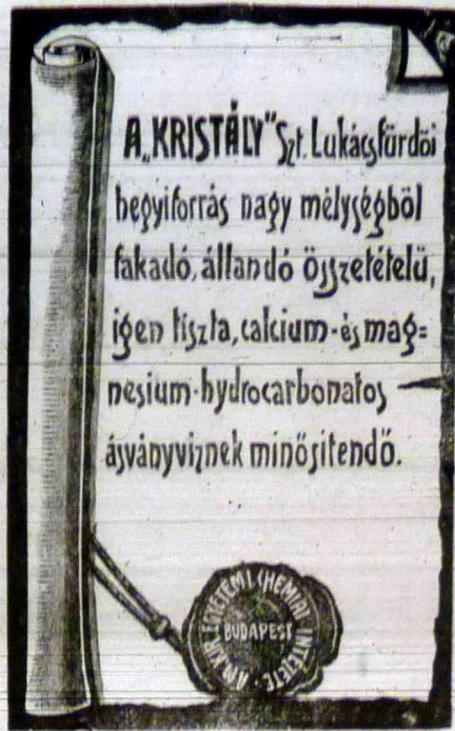 A „KRISTÁLY" Szt. Lukácsfürdői
hegyiforrás nagy mélységből
fakadó, állandó összetételű,
igen tiszta, calcium- és mag=
nesium-hydrocarbonatos
ásványvíznek minősítendő.
A M. KIR. EGYETEMI CHEMIAI INTÉZETE
BUDAPEST